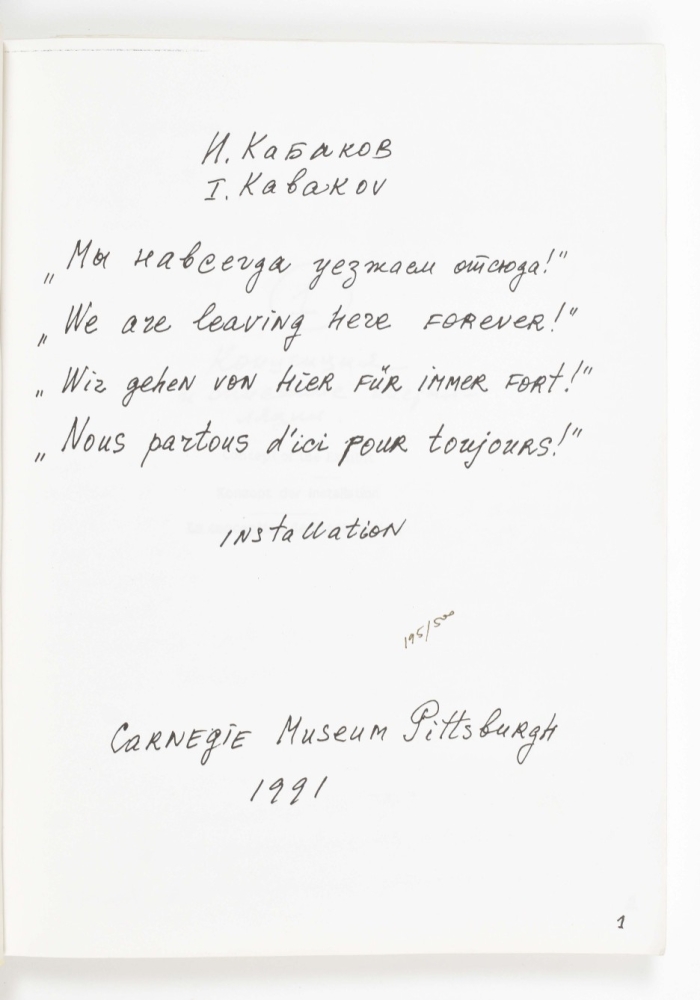 И. Кабаков
I. Kabakov
„Мы навсегда уезжаем отсюда!"
„We are leaving here forever!"
„Wir gehen von hier für immer fort!"
„Nous partous d'ici pour toujours!"
installation
195/500
Carnegie Museum Pittsburgh
1991
1